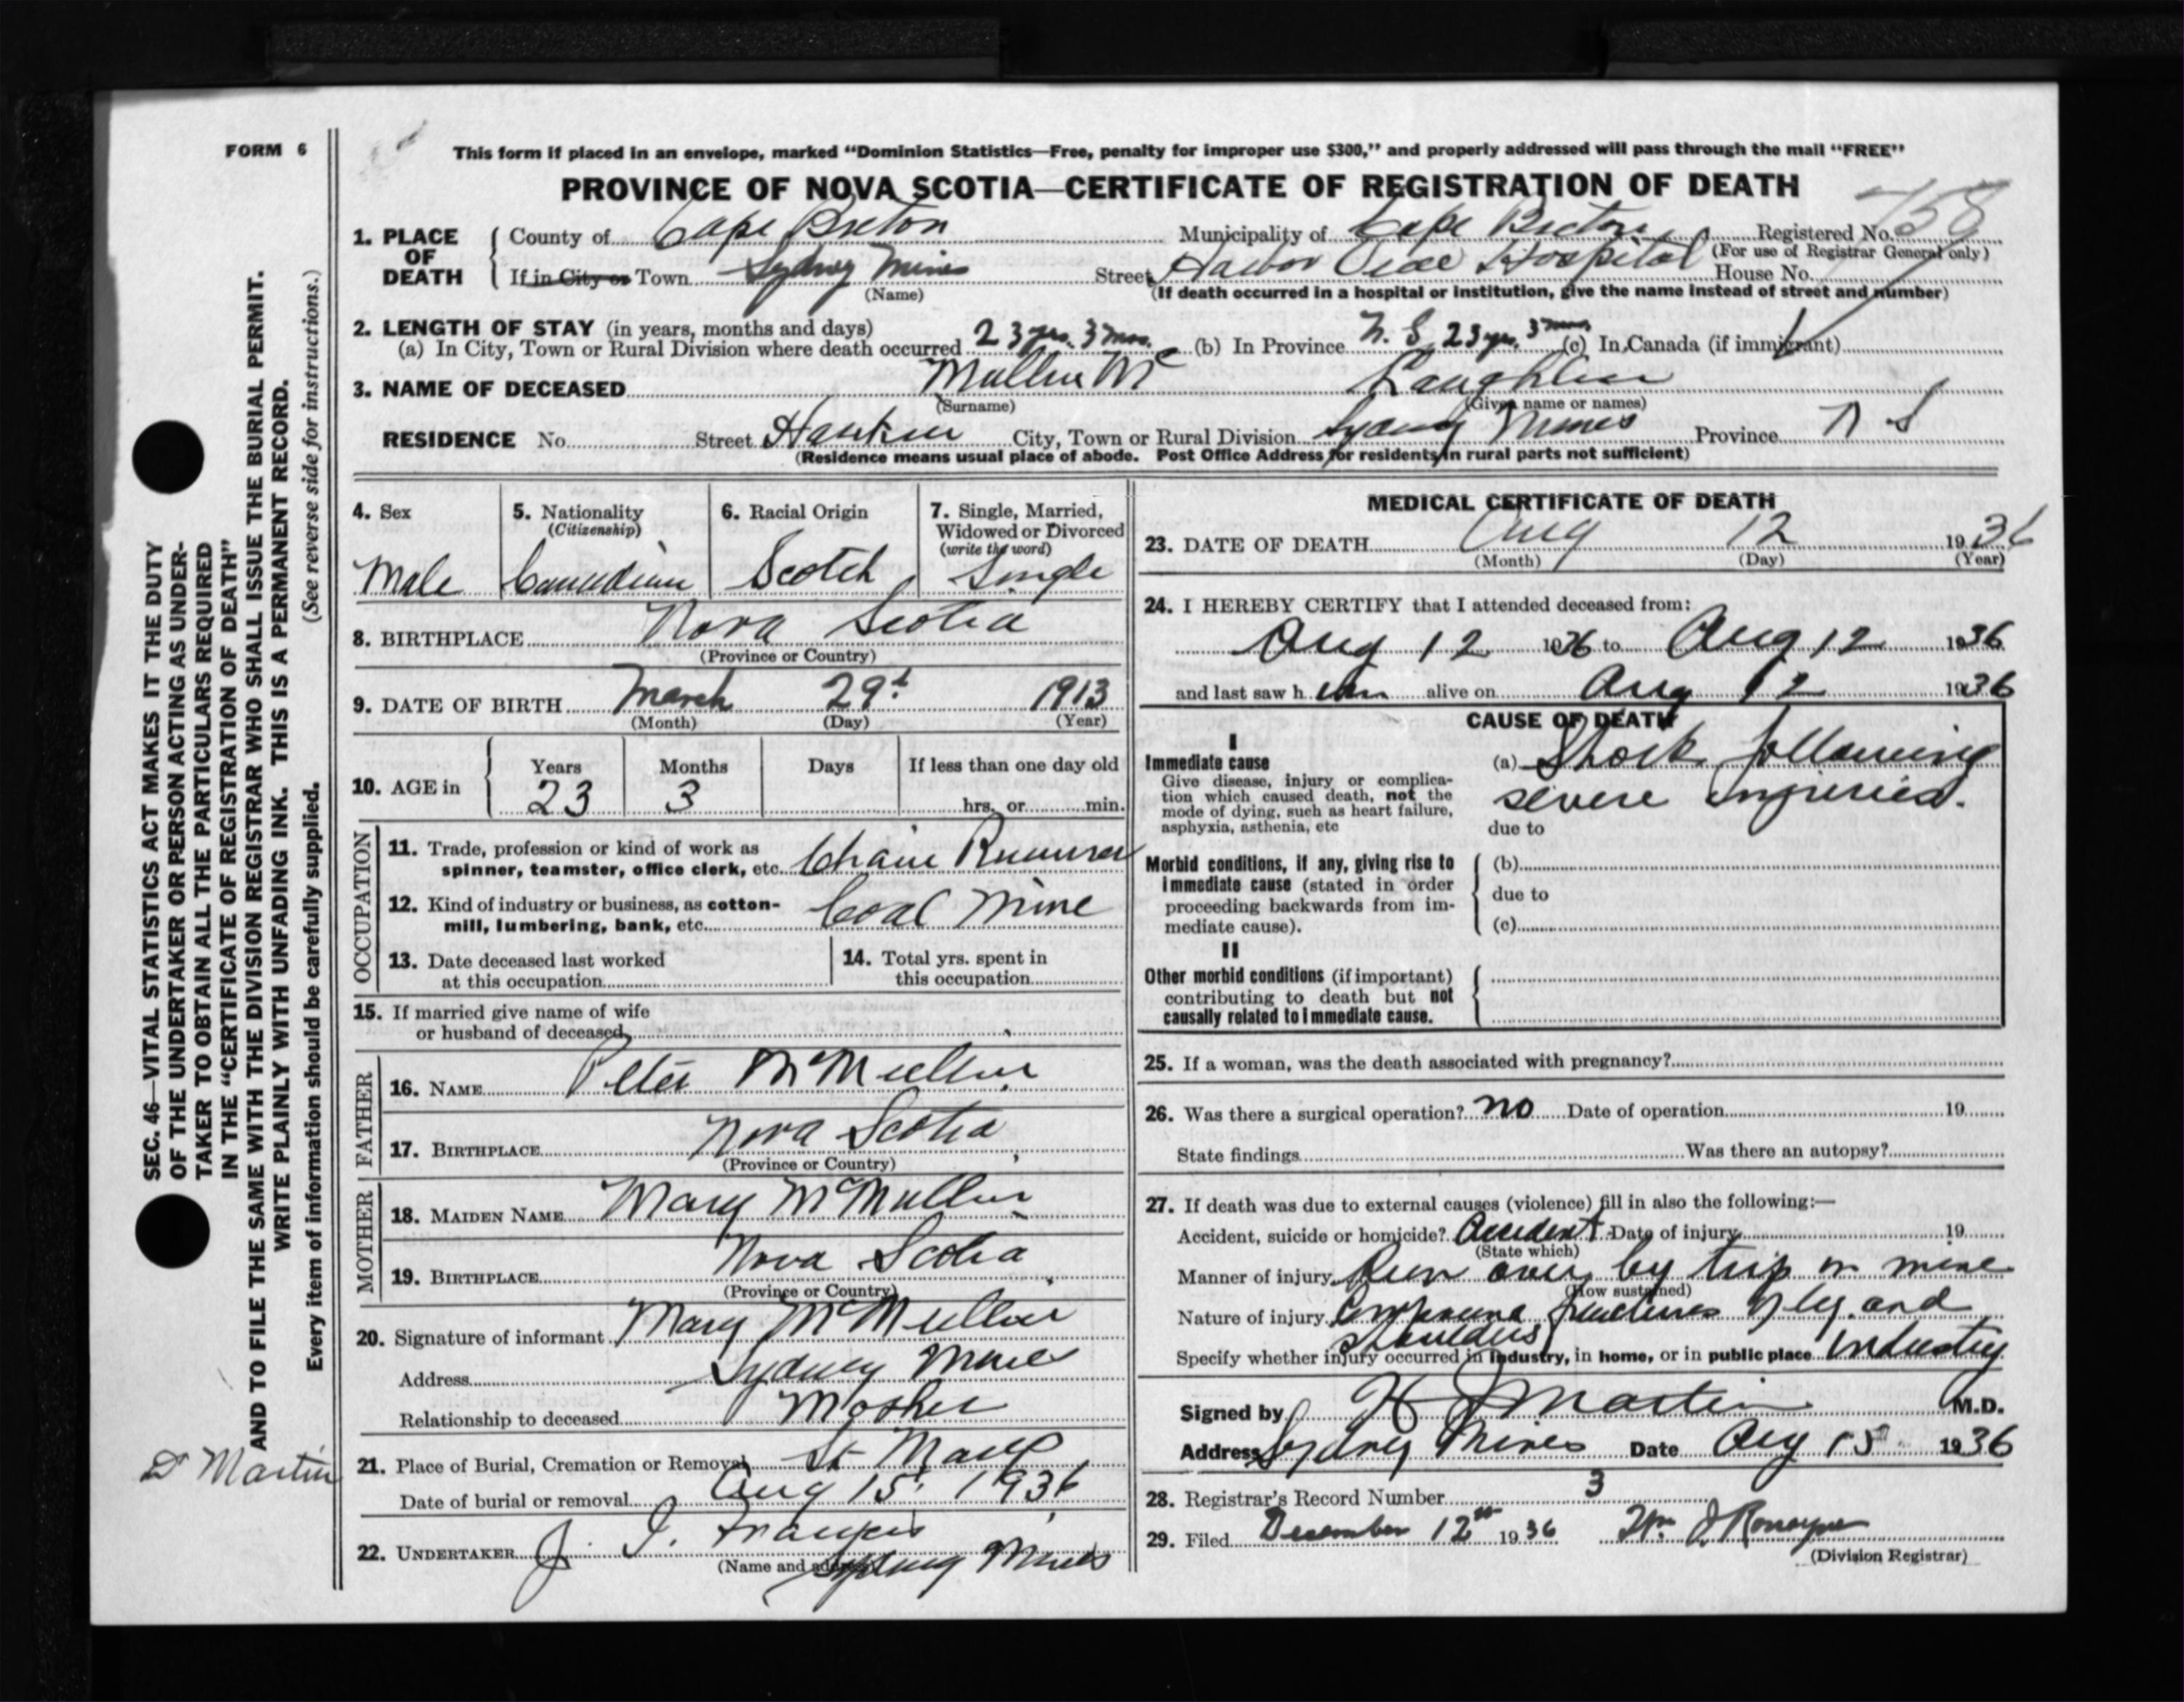 FORM 6
This form if placed in an envelope, marked “Dominion Statistics—Free, penalty for improper use $300,” and properly addressed will pass through the mail “FREE”
PROVINCE OF NOVA SCOTIA—CERTIFICATE OF REGISTRATION OF DEATH
1. PLACE OF DEATH
County of Cape Breton Municipality of Cape Breton Registered No.
(For use of Registrar General only)
If in City or Town Sydney Mines Street Harbor View Hospital House No.
(Name) (If death occurred in a hospital or institution, give the name instead of street and number)
2. LENGTH OF STAY (in years, months and days)
(a) In City, Town or Rural Division where death occurred 23 yrs. 3 mos. (b) In Province N. S. 23 yrs. 3 mos (c) In Canada (if immigrant)
3. NAME OF DECEASED Mullin Mc Laughlin
(Surname) (Given name or names)
RESIDENCE No. Street City, Town or Rural Division Sydney Mines Province N S
(Residence means usual place of abode. Post Office Address for residents in rural parts not sufficient)
4. Sex 5. Nationality (Citizenship) 6. Racial Origin 7. Single, Married, Widowed or Divorced (write the word)
Male Canadian Scotch Single
8. BIRTHPLACE Nova Scotia
(Province or Country)
9. DATE OF BIRTH March 29 1913
(Month) (Day) (Year)
10. AGE in Years Months Days If less than one day old
23 3 hrs. or min.
OCCUPATION
11. Trade, profession or kind of work as
spinner, teamster, office clerk, etc. Chain Runner
12. Kind of industry or business, as cotton-
mill, lumbering, bank, etc. Coal Mine
13. Date deceased last worked
at this occupation
14. Total yrs. spent in
this occupation
15. If married give name of wife
or husband of deceased
FATHER
16. NAME Peter McMullin
17. BIRTHPLACE Nova Scotia
(Province or Country)
MOTHER
18. MAIDEN NAME Mary McMullin
19. BIRTHPLACE Nova Scotia
(Province or Country)
20. Signature of informant Mary McMullin
Address Sydney Mines
Relationship to deceased Mother
21. Place of Burial, Cremation or Removal St Marys
Date of burial or removal Aug 15 1936
22. UNDERTAKER J.
(Name and address) Sydney Mines
MEDICAL CERTIFICATE OF DEATH
23. DATE OF DEATH Aug 12 1936
(Month) (Day) (Year)
24. I HEREBY CERTIFY that I attended deceased from:
Aug 12 1936 to Aug 12 1936
and last saw him alive on Aug 12 1936
CAUSE OF DEATH
I
Immediate cause
Give disease, injury or complica-
tion which caused death, not the
mode of dying, such as heart failure,
asphyxia, asthenia, etc
(a) Shock following
severe injuries.
due to
Morbid conditions, if any, giving rise to
immediate cause (stated in order
proceeding backwards from im-
mediate cause).
(b)
due to
(c)
II
Other morbid conditions (if important)
contributing to death but not
causally related to immediate cause.
25. If a woman, was the death associated with pregnancy?
26. Was there a surgical operation? no Date of operation 19
State findings Was there an autopsy?
27. If death was due to external causes (violence) fill in also the following:—
Accident, suicide or homicide? Accident Date of injury 19
(State which)
Manner of injury Run over by trip in mine
(How sustained)
Nature of injury Compound fractures of leg and
shoulders
Specify whether injury occurred in industry, in home, or in public place industry
Signed by H J Martin M.D.
Address Sydney Mines Date Aug 15 1936
28. Registrar's Record Number 3
29. Filed December 12th 1936 Wm J Ronayne
(Division Registrar)
SEC. 46—VITAL STATISTICS ACT MAKES IT THE DUTY
OF THE UNDERTAKER OR PERSON ACTING AS UNDER-
TAKER TO OBTAIN ALL THE PARTICULARS REQUIRED
IN THE “CERTIFICATE OF REGISTRATION OF DEATH”
AND TO FILE THE SAME WITH THE DIVISION REGISTRAR WHO SHALL ISSUE THE BURIAL PERMIT.
WRITE PLAINLY WITH UNFADING INK. THIS IS A PERMANENT RECORD.
Every item of information should be carefully supplied. (See reverse side for instructions.)
Dr Martin